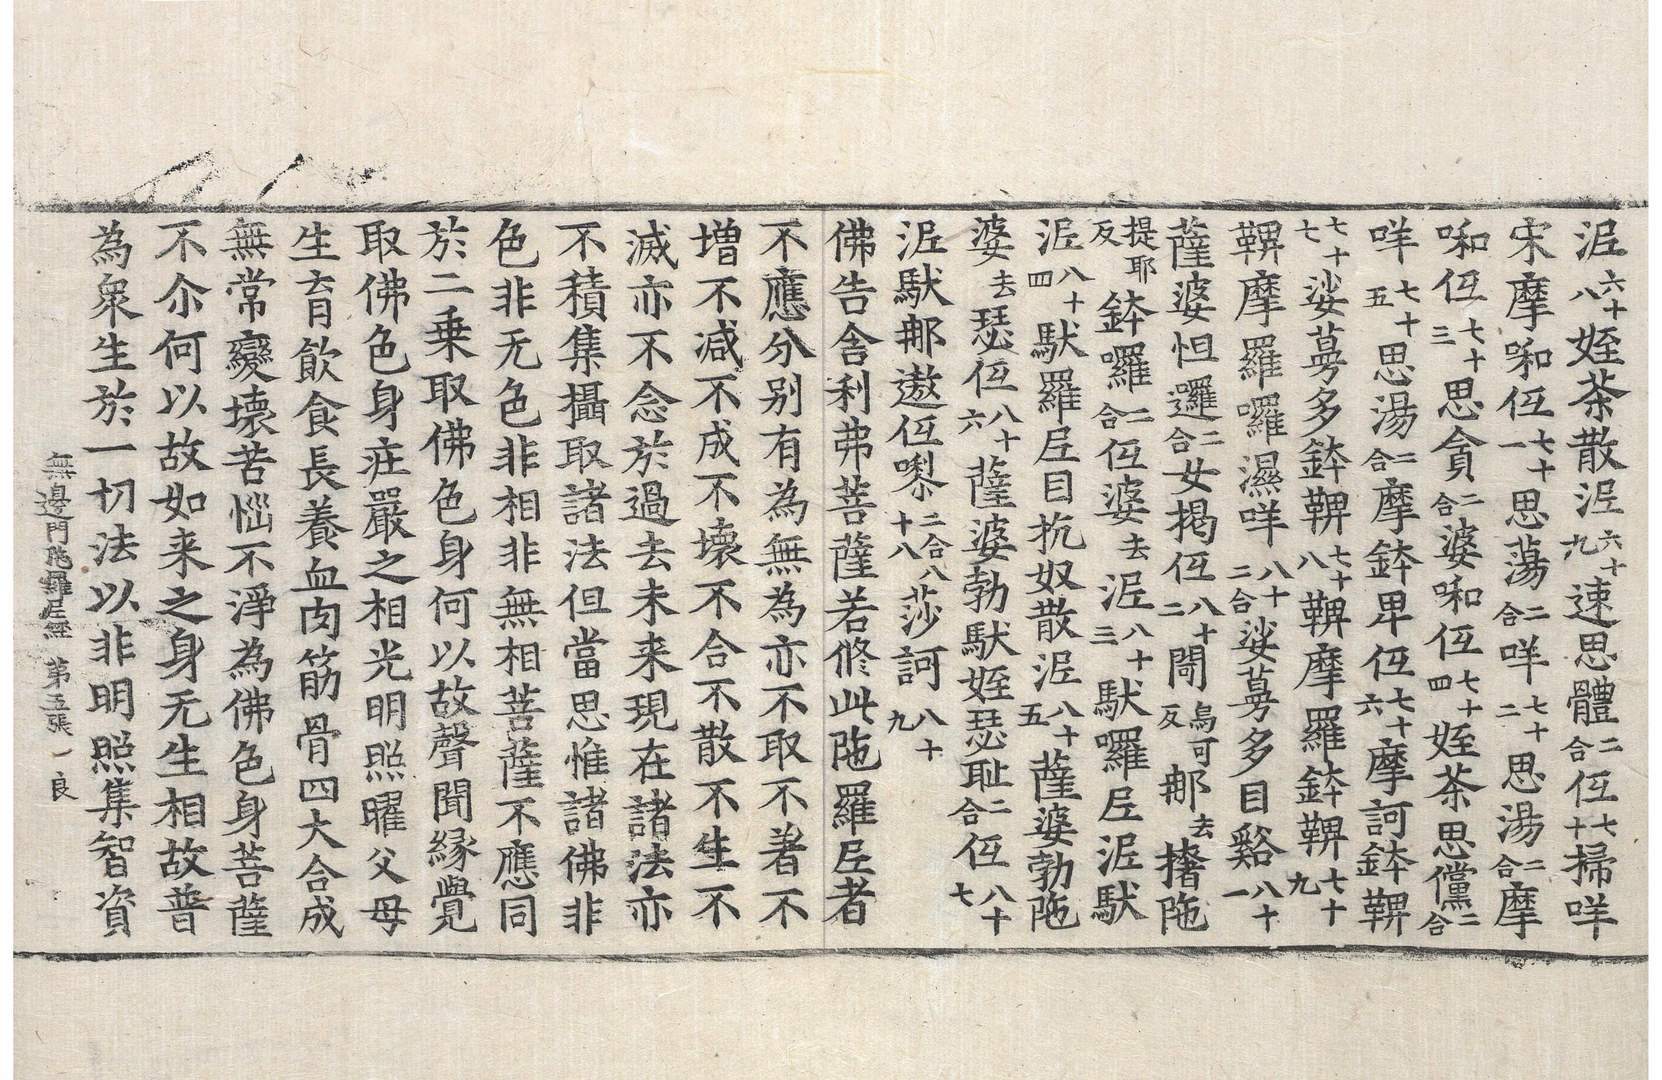 泥六十八姪荼散泥六十九速思體二合伍七十掃咩
宋摩啝伍七十一思蕩二合咩七十二思湯二合摩
啝伍七十三思貪二合婆啝伍七十四姪荼思儻二合
咩七十五思湯二合摩鉢卑伍七十六摩訶鉢鞞
七十七娑蕚多鉢鞞七十八鞞摩羅鉢鞞七十九
鞞摩羅囉濕咩二合八十娑蕚多目谿八十一
薩婆怛邏二合女揭伍八十二閜烏可反𨚗去撦陁
提耶反鉢囉二合伍婆去泥八十三馱囉𡰱泥馱
泥八十四馱羅𡰱目抗奴散泥八十五薩婆勃陁
婆去瑟伍八十六薩婆勃馱姪瑟耻二合伍八十七
泥馱𨚗遨伍㗚二合八十八莎訶八十九
佛告舍利弗菩薩若修此陁羅𡰱者
不應分別有為無為亦不取不著不
增不減不成不壞不合不散不生不
滅亦不念於過去未来現在諸法亦
不積集攝取諸法但當思惟諸佛非
色非无色非相非無相菩薩不應同
於二乗取佛色身何以故聲聞縁覺
取佛色身㽵嚴之相光明照曜父母
生育飲食長養血肉筋骨四大合成
無常變壞苦惱不淨為佛色身菩薩
不尒何以故如来之身无生相故普
為衆生於一切法以非明照集智資
無邊門陁羅𡰱經 第五張 一良